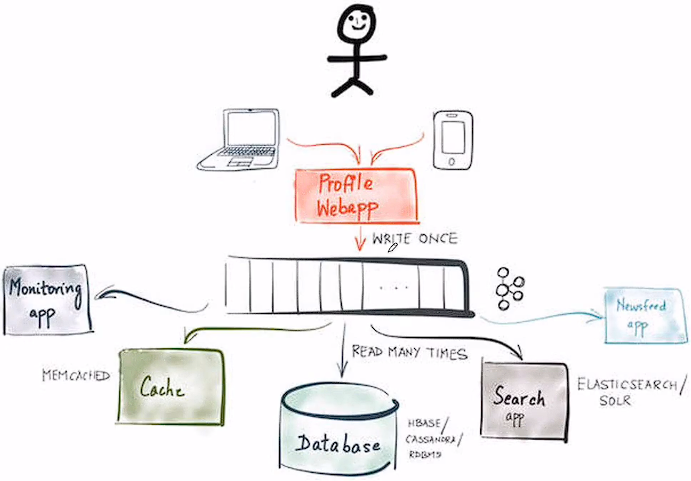 Profile
Webapp
WRITE ONCE
. . .
Monitoring
app
Newsfeed
app
MEMCACHED
Cache
READ MANY TIMES
Database
HBASE/
CASSANDRA/
RDBMS
Search
app
ELASTICSEARCH/
SOLR